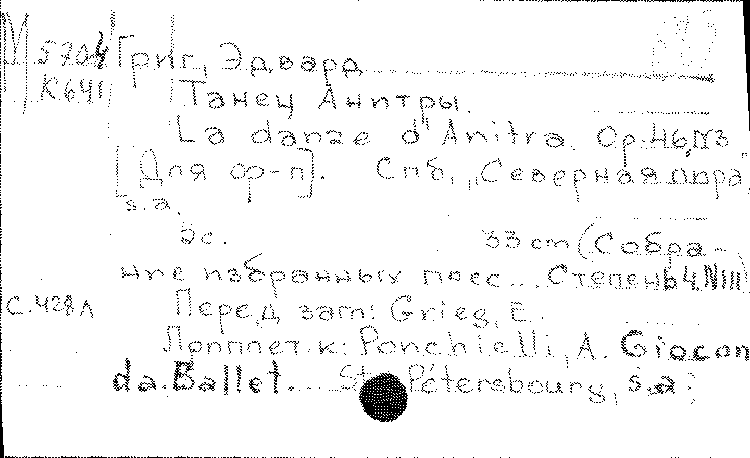 М 5704 Григ, Эдвард
К641 Танец Анитры.
La danze d'Anitra. Op. 46, N3
[Для ор-п]. Спб., „Северная лира",
s.a.
5с. 33 cm (Собра-
ние избранных пьес... Степень 4. N III)
С.428Л Перед загл: Grieg, E.
Приплет. к: Ponchielli, A. Giocon
da. Ballet. ... St. Pétersbourg, s.a.